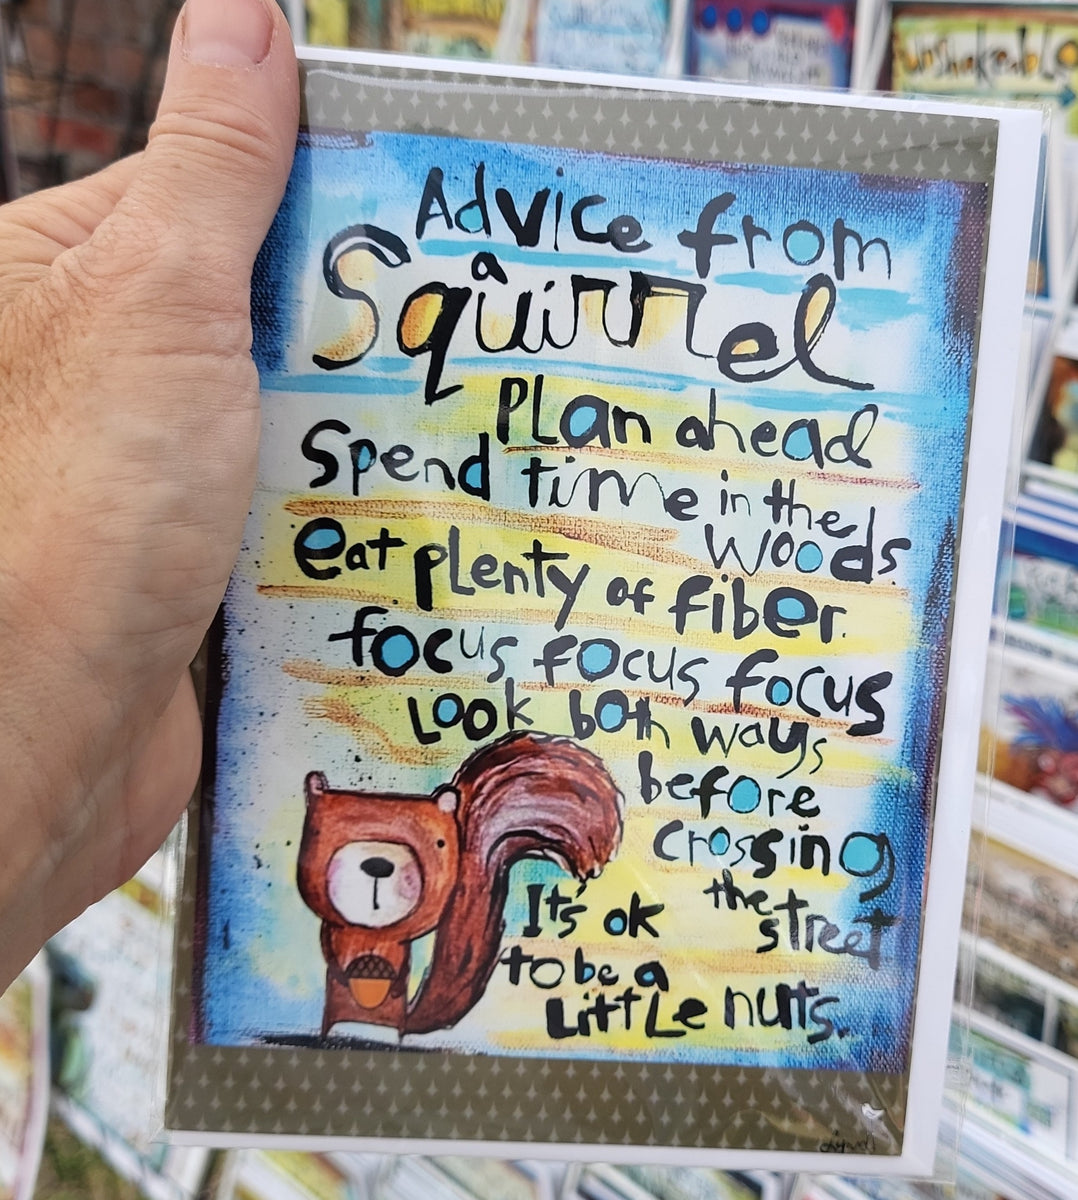 unshakeable
Advice from
a
Squirrel
Plan ahead
Spend time in the
woods.
eat plenty of fiber.
focus focus focus
Look both ways
before
crossing
the
street
It's ok
to be a
Little nuts.